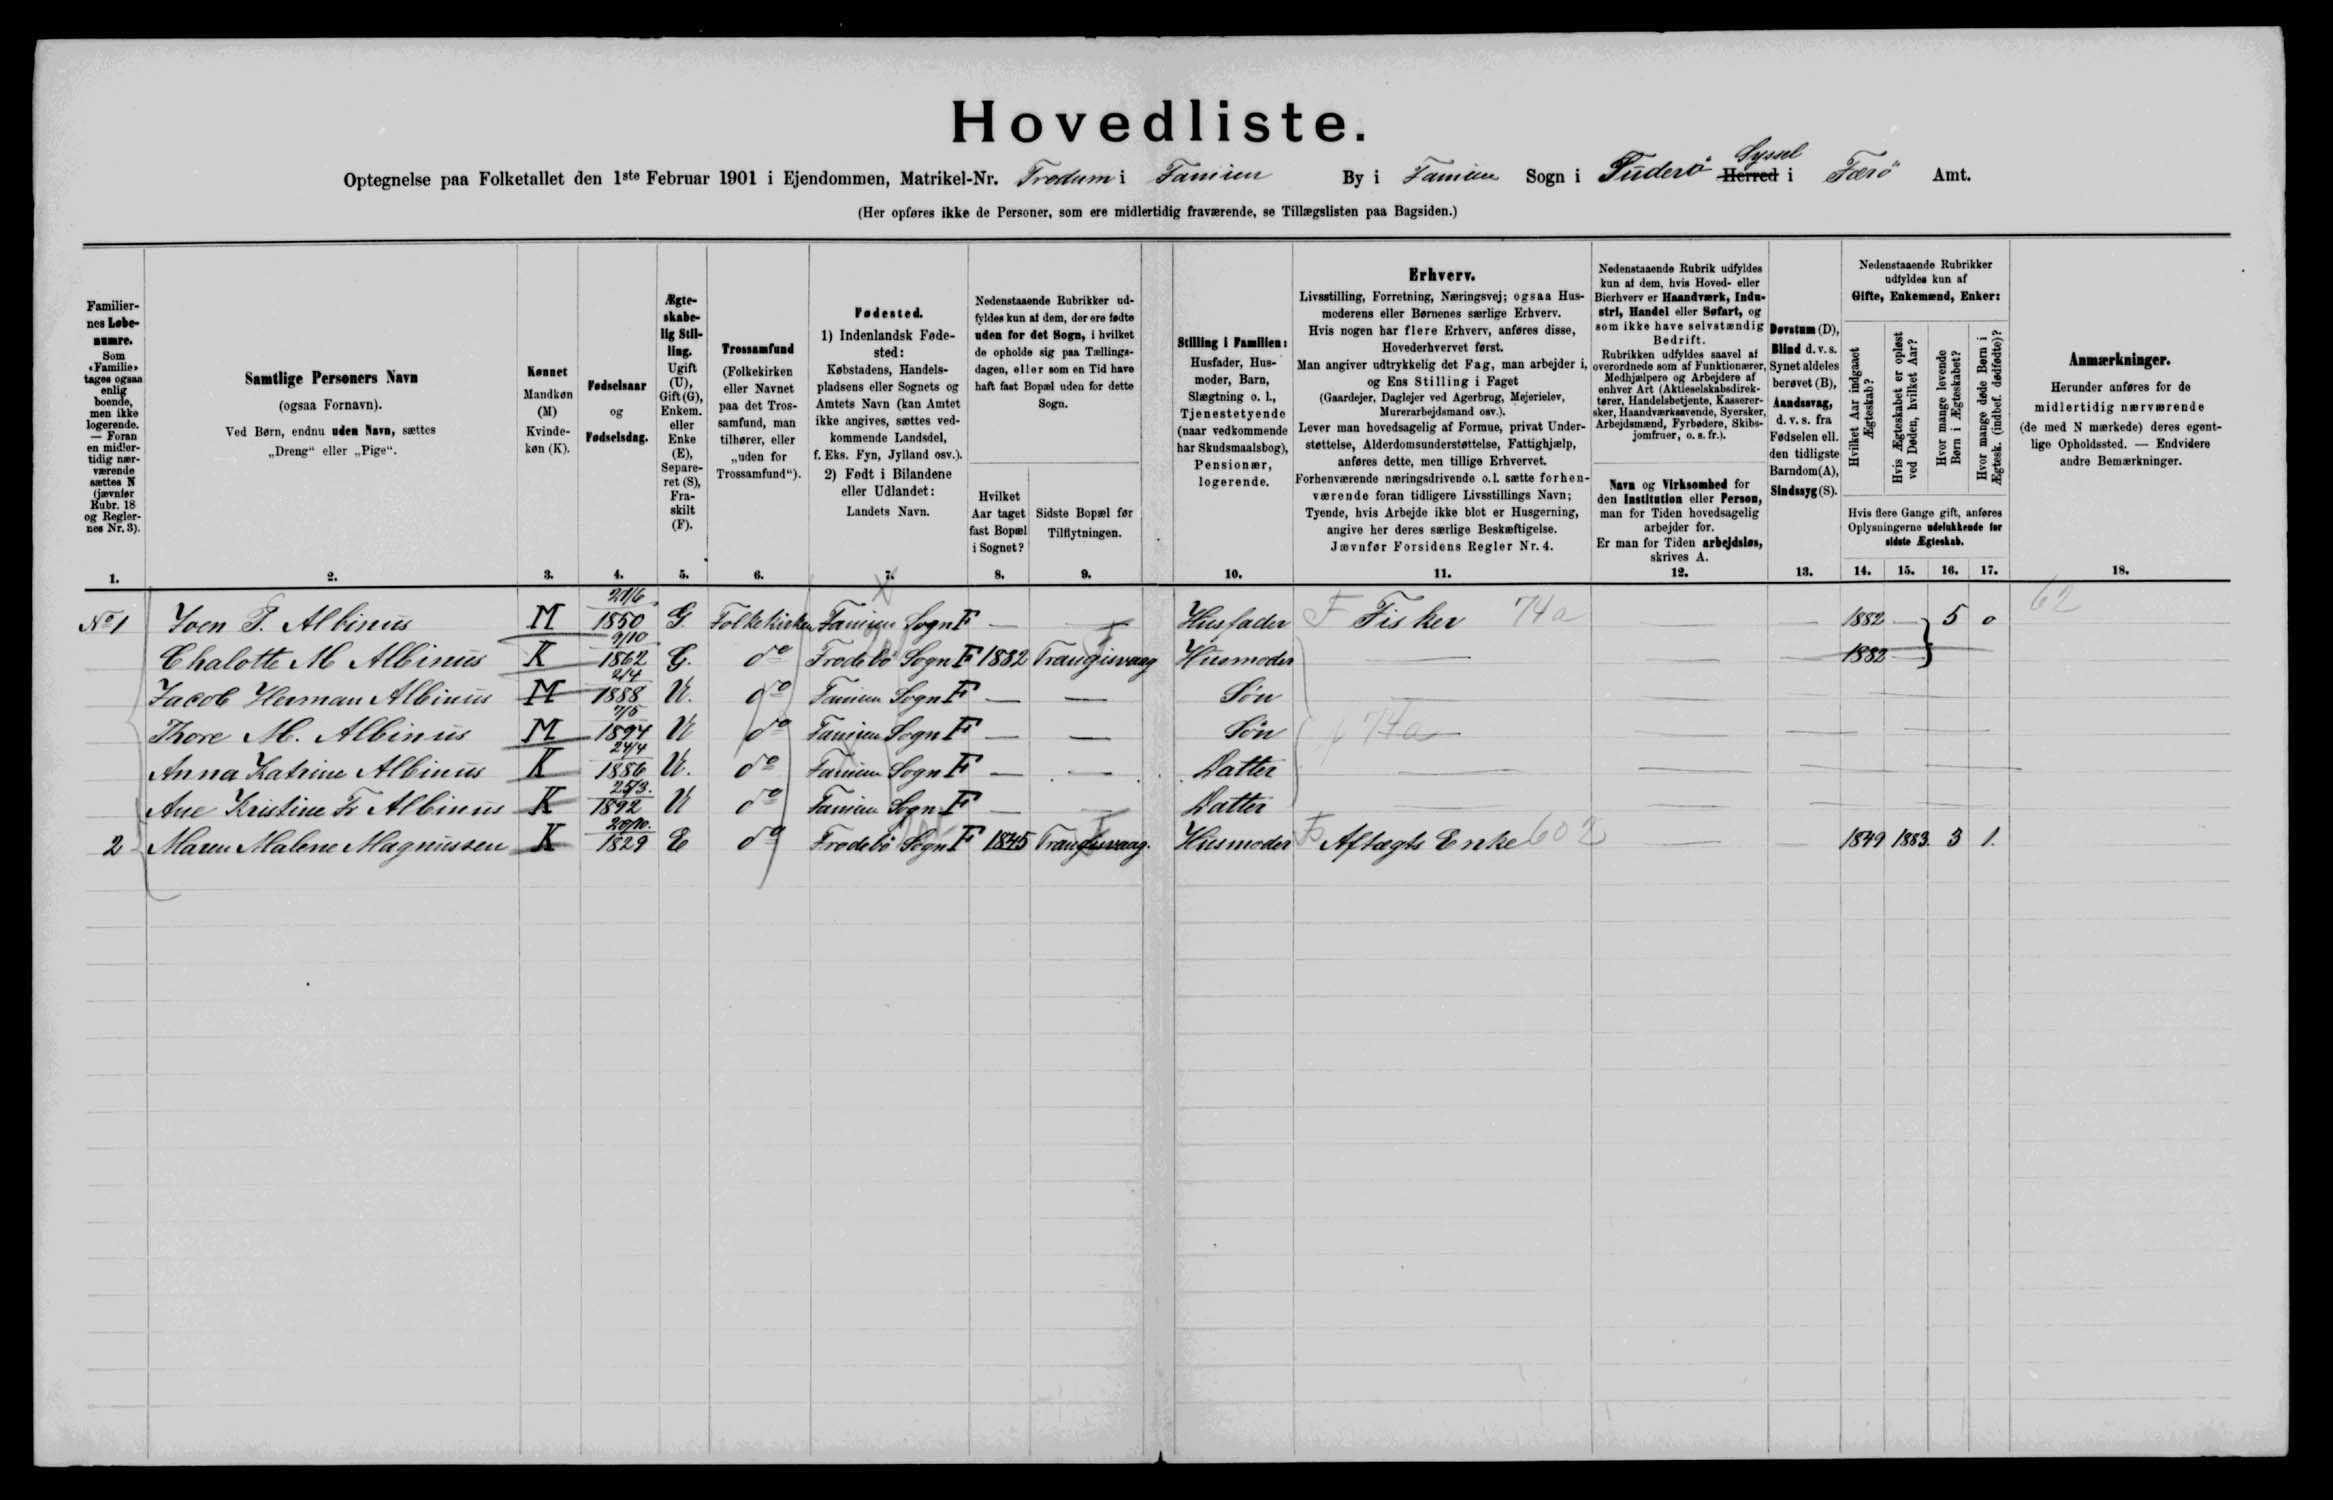 Hovedliste.
Optegnelse paa Folketallet den 1ste Februar 1901 i Ejendommen, Matrikel-Nr. Trodum i Famien By i Famien Sogn i Suderö Syssel Herred i Færö Amt.
(Her opføres ikke de Personer, som ere midlertidig fraværende, se Tillægslisten paa Bagsiden.)
Familiernes Løbenumre.
Som «Familie» tages ogsaa enlig boende, men ikke logerende. — Foran en midlertidig nærværende sættes N (jævnfør Rubr. 18 og Reglernes Nr. 3).
Samtlige Personers Navn
(ogsaa Fornavn).
Ved Børn, endnu uden Navn, sættes
„Dreng“ eller „Pige“.
Kønnet
Mandkøn (M)
Kvindekøn (K).
Fødselsaar
og
Fødselsdag.
Ægteskabelig Stilling.
Ugift (U), Gift (G), Enkem. eller Enke (E), Separeret (S), Fraskilt (F).
Trossamfund
(Folkekirken eller Navnet paa det Trossamfund, man tilhører, eller „uden for Trossamfund“).
Fødested.
1) Indenlandsk Fødested:
Købstadens, Handelspladsens eller Sognets og Amtets Navn (kan Amtet ikke angives, sættes vedkommende Landsdel, f. Eks. Fyn, Jylland osv.).
2) Født i Bilandene eller Udlandet:
Landets Navn.
Nedenstaaende Rubrikker udfyldes kun af dem, der ere fødte uden for det Sogn, i hvilket de opholde sig paa Tællingsdagen, eller som en Tid have haft fast Bopæl uden for dette Sogn.
Hvilket Aar taget fast Bopæl i Sognet?
Sidste Bopæl før Tilflytningen.
Stilling i Familien:
Husfader, Husmoder, Barn, Slægtning o. l., Tjenestetyende (naar vedkommende har Skudsmaalsbog), Pensionær, logerende.
Erhverv.
Livsstilling, Forretning, Næringsvej; ogsaa Husmoderens eller Børnenes særlige Erhverv.
Hvis nogen har flere Erhverv, anføres disse, Hovederhvervet først.
Man angiver udtrykkelig det Fag, man arbejder i, og Ens Stilling i Faget
(Gaardejer, Daglejer ved Agerbrug, Mejerielev, Murerarbejdsmand osv.).
Lever man hovedsagelig af Formue, privat Understøttelse, Alderdomsunderstøttelse, Fattighjælp, anføres dette, men tillige Erhvervet.
Forhenværende næringsdrivende o. l. sætte forhenværende foran tidligere Livsstillings Navn;
Tyende, hvis Arbejde ikke blot er Husgerning, angive her deres særlige Beskæftigelse.
Jævnfør Forsidens Regler Nr. 4.
Nedenstaaende Rubrik udfyldes kun af dem, hvis Hoved- eller Bierhverv er Haandværk, Industri, Handel eller Søfart, og som ikke have selvstændig Bedrift.
Rubrikken udfyldes saavel af overordnede som af Funktionærer, Medhjælpere og Arbejdere af enhver Art (Aktieselskabsdirektører, Handelsbetjente, Kasserersker, Haandværkssvende, Syersker, Arbejdsmænd, Fyrbødere, Skibsjomfruer, o. s. fr.).
Navn og Virksomhed for den Institution eller Person, man for Tiden hovedsagelig arbejder for.
Er man for Tiden arbejdsløs, skrives A.
Døvstum (D), Blind d. v. s. Synet aldeles berøvet (B), Aandssvag, d. v. s. fra Fødselen ell. den tidligste Barndom (A), Sindssyg (S).
Nedenstaaende Rubrikker udfyldes kun af
Gifte, Enkemænd, Enker:
Hvilket Aar indgaaet Ægteskab?
Hvis Ægteskabet er opløst ved Døden, hvilket Aar?
Hvor mange levende Børn i Ægteskabet?
Hvor mange døde Børn i Ægtesk. (indbef. dødfødte)?
Hvis flere Gange gift, anføres Oplysningerne udelukkende for sidste Ægteskab.
Anmærkninger.
Herunder anføres for de midlertidig nærværende (de med N mærkede) deres egentlige Opholdssted. — Endvidere andre Bemærkninger.
1. 2. 3. 4. 5. 6. 7. 8. 9. 10. 11. 12. 13. 14. 15. 16. 17. 18.
No 1 Joen P. Albinus M 21/6 1850 G Folkekirken Famien Sogn F — — Husfader F Fisker 74a — — 1882 — 5 0 62
Chalotte M Albinus K 9/10 1862 G. do Frodebö Sogn F 1882 Trangisvaag Husmoder — — — 1882 —
Jacob Herman Albinus M 2/4 1888 U. do Famien Sogn F — — Søn — — —
Thore M. Albinus M 7/5 1894 U do Famien Sogn F — — Søn 74a — — —
Anna Katrine Albinus K 24/4 1886 U. do Famien Sogn F — — Datter — — —
Ane Kristine Fr Albinus K 25/3. 1892 U do Famien Sogn F — — Datter — — —
2 Maren Malene Magnussen K 20/10. 1829 E do Frodebö Sogn F 1845 Trangisvaag. Husmoder Fs Aftægts Enke 602 — 1849 1883. 3 1.